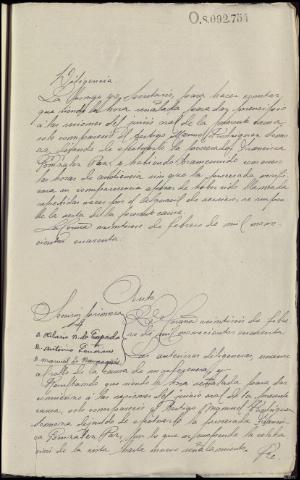 O.8.092.754
Diligencia
La pongo yo, Secretario, para hacer constar
que siendo la hora señalada para dar principio
a las sesiones del juicio oral de la presente causa
solo compareció el testigo Manuel Rodríguez
dejando de efectuarlo la procesada Francisca
González Paz, y habiendo transcurrido con exceso
las horas de audiencia sin que la procesada
su comparecencia a pesar de haber sido llamada
repetidas veces por el de servicio,
de la vista de la presente causa
La Coruña veintiuno de febrero de mil nove-
cientos cuarenta.
Auto
Señores
D. Hilario N. de
D. Antonio
D. Manuel
La Coruña veintiuno de febre-
ro de mil novecientos cuarenta
La anterior diligencia, únase
al rollo de la causa de su referencia y
Resultando que siendo la hora señalada para dar
comienzo a las sesiones del juicio oral de la presente
causa, solo compareció el testigo Manuel Rodríguez
dejando de efectuarlo la procesada Francis-
ca González Paz, por lo que se suspende la celebra-
ción de la vista hasta nuevo señalamiento.